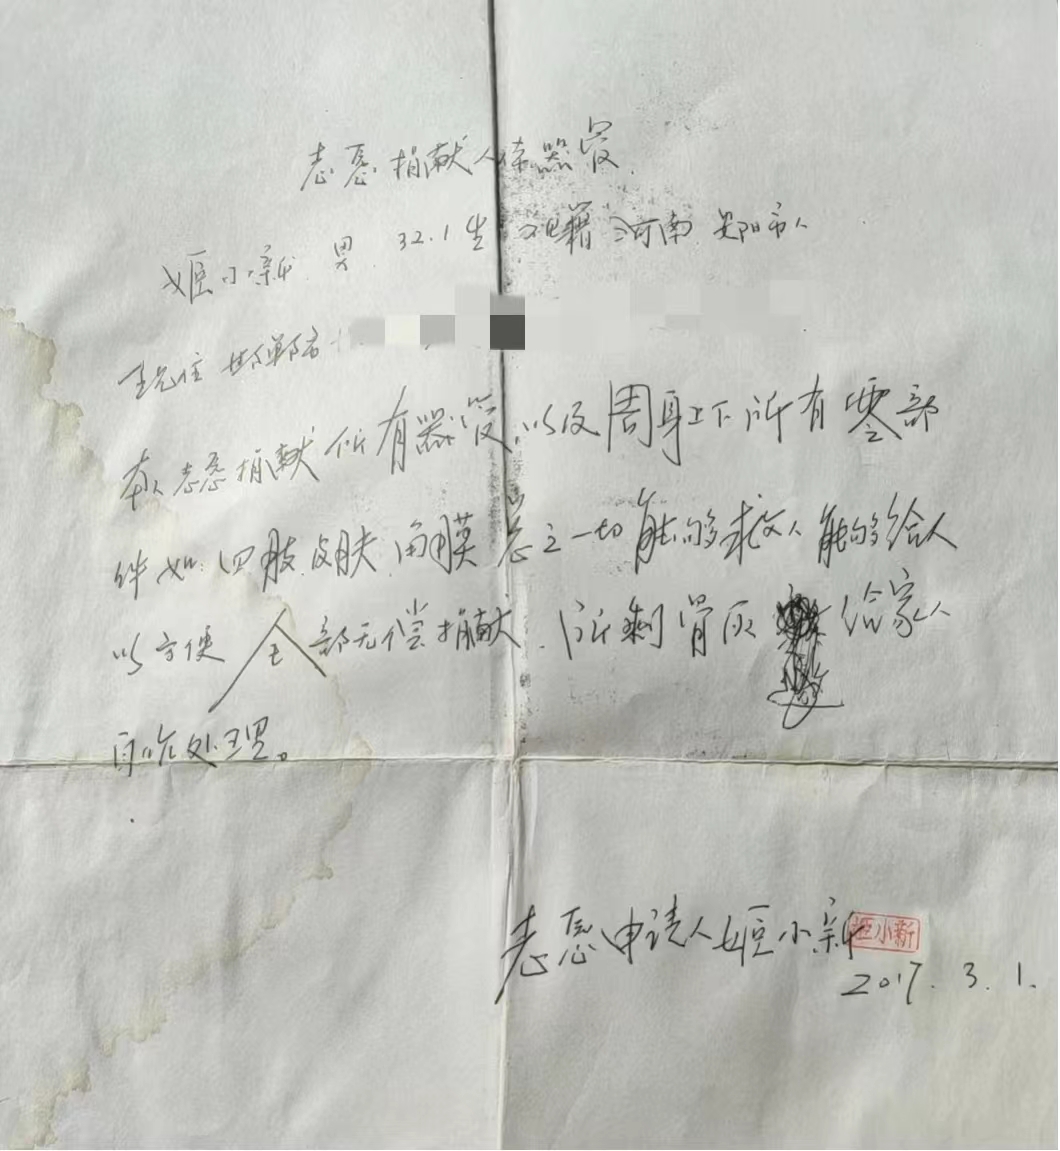 志愿捐献人体器官
姬小新 男 32.1生 祖籍 河南 安阳市人
现住 邯郸市
本人志愿捐献所有器官以及周身上下所有零部
件如:四肢皮肤、角膜总之一切能够救人能够给人
以方便 全部无偿捐献.所剩骨灰 给家人
自行处理。
志愿申请人姬小新
姬小新
2017.3.1.